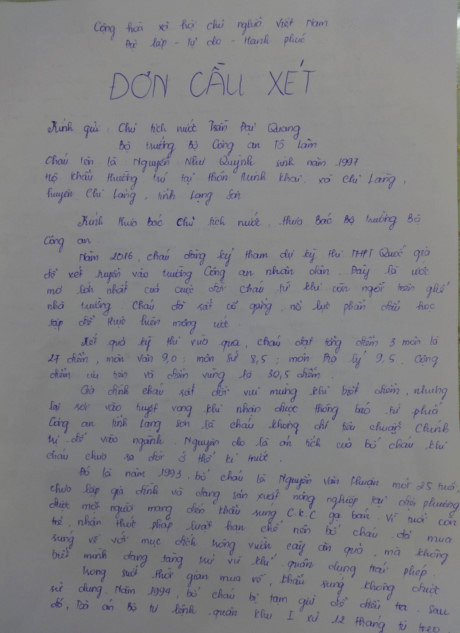 Cộng hòa xã hội chủ nghĩa Việt Nam
Độc lập - Tự do - Hạnh phúc
ĐƠN CẦU XÉT
Kính gửi : Chủ tịch nước Trần Đại Quang
Bộ trưởng Bộ Công an Tô Lâm
Cháu tên là Nguyễn Như Quỳnh sinh năm 1997
Hộ khẩu thường trú tại thôn Minh Khai, xã Chi Lăng,
huyện Chi Lăng, tỉnh Lạng Sơn
Kính thưa bác Chủ tịch nước, thưa bác Bộ trưởng Bộ
Công an
Năm 2016, cháu đăng ký tham dự kỳ thi THPT Quốc gia
để xét tuyển vào trường Công an nhân dân. Đây là ước
mơ lớn nhất của cuộc đời cháu từ khi còn ngồi trên ghế
nhà trường. Cháu đã rất cố gắng, nỗ lực phấn đấu học
tập để thực hiện mong ước
Kết quả kỳ thi vừa qua, cháu đạt tổng điểm 3 môn là
27 điểm, môn Văn 9,0; môn Sử 8,5; môn Địa lý 9,5. Cộng
điểm ưu tiên và điểm vùng là 30,5 điểm
Gia đình cháu rất đỗi vui mừng khi biết điểm, nhưng
lại rơi vào tuyệt vọng khi nhận được thông báo từ phía
Công an tỉnh Lạng Sơn là cháu không đủ tiêu chuẩn Chính
trị để vào ngành. Nguyên do là án tích của bố cháu khi
cháu chưa ra đời 3 thế kỉ trước.
Đó là năm 1993, bố cháu là Nguyễn Văn Thuận mới 25 tuổi,
chưa lập gia đình và đang sản xuất nông nghiệp tại địa phương
được mời người mang đến khẩu súng C.K.C gạ bán. Vì tuổi còn
trẻ, nhận thức pháp luật hạn chế nên bố cháu đã mua
súng về với mục đích trông vườn cây ăn quả, mà không
biết mình đang tàng trữ vũ khí quân dụng trái phép.
Trong suốt thời gian mua về, khẩu súng không được
sử dụng. Năm 1994, bố cháu bị tạm giữ để điều tra. Sau
đó, tòa án Bộ tư lệnh quân khu I xử 12 tháng tù treo